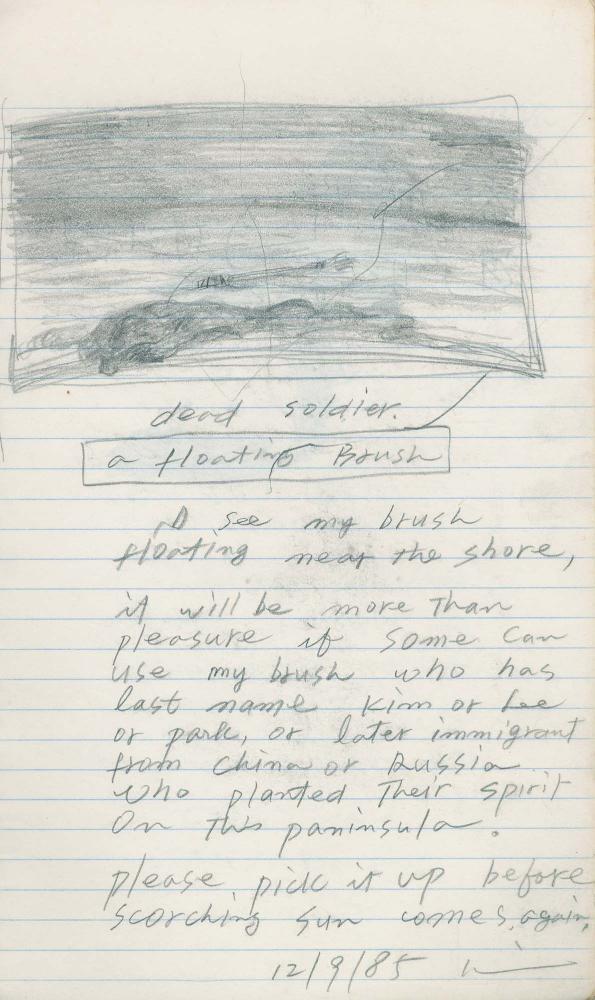 dead soldier.
a floating Brush
I see my brush
floating near the shore,
it will be more Than
pleasure if some can
use my brush who has
last name Kim or Lee
or park, or later immigrant
from China or Russia
who planted Their spirit
On This paninsula.
please pick it up before
scorching sun comes again,
12/9/85